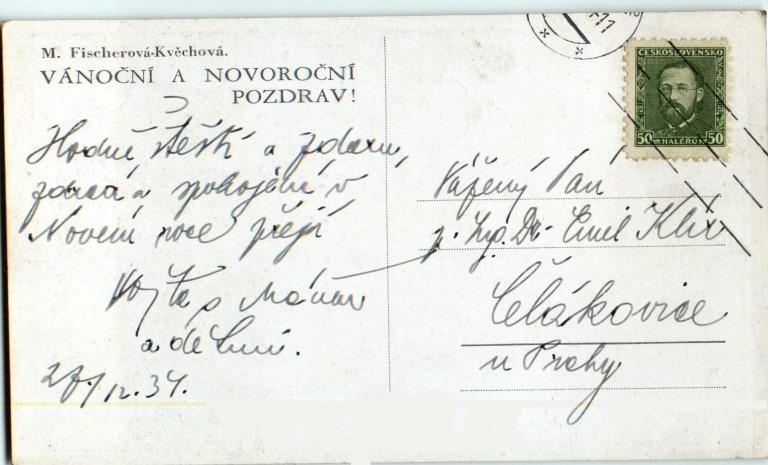 M. Fischerová-Kvěchová.
VÁNOČNÍ A NOVOROČNÍ
POZDRAV!
Hodně štěstí a zdaru,
zdraví a spokojení v
Novém roce přejí
Vojta s Máňou
a dětmi.
27/12.34.
ČESKOSLOVENSKO
50 HALÉŘŮ 50
Vážený Pán
p. Ing. Dr. Emil Klír
Čelákovice
u Prahy